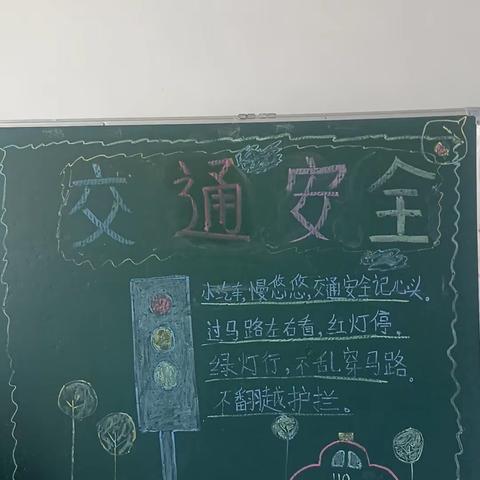 交通安全
小汽车,慢悠悠,交通安全记心头。
过马路左右看,红灯停。
绿灯行,不乱穿马路。
不翻越护拦。
110